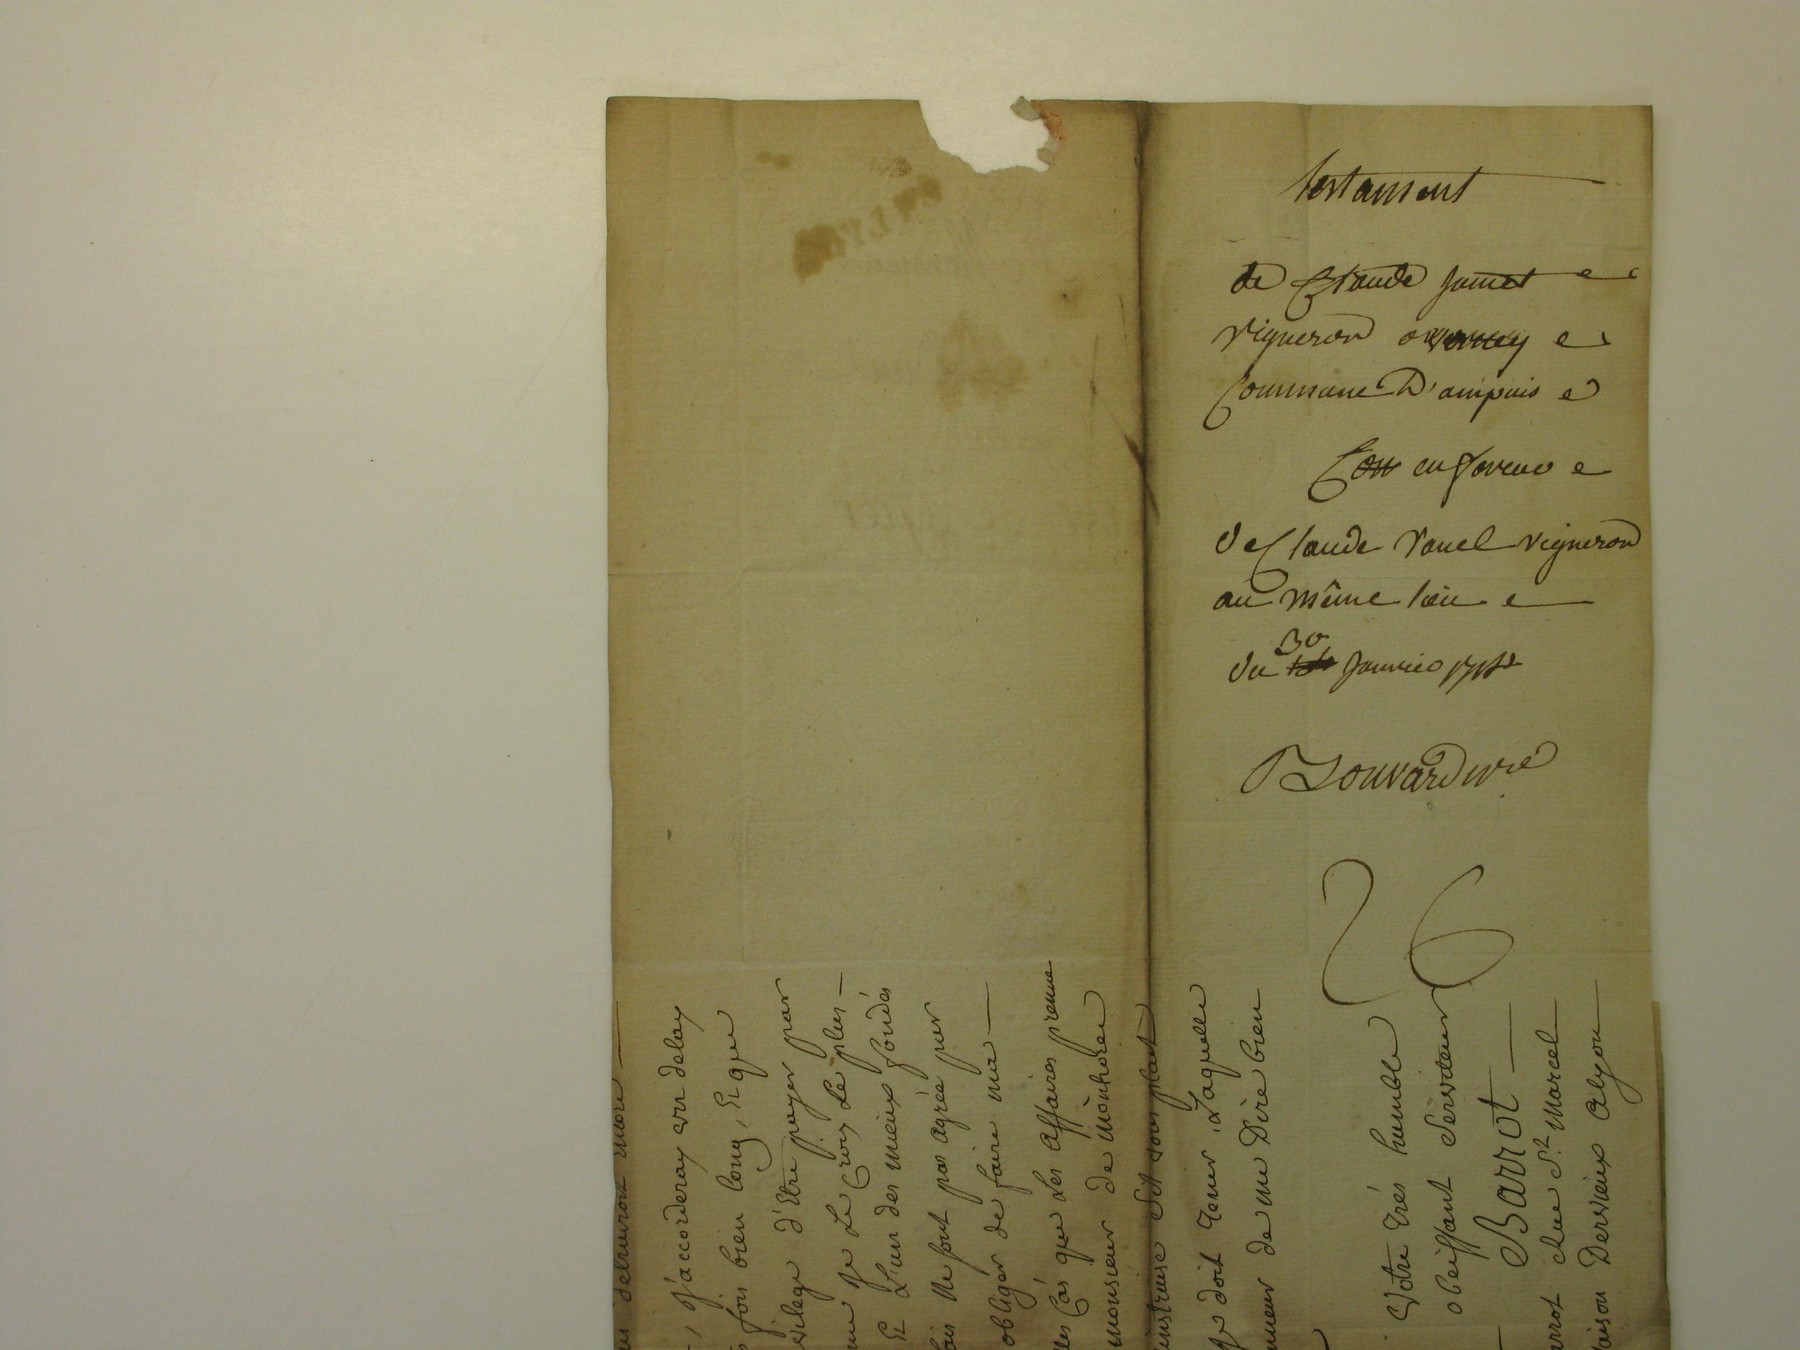 testament
de Claude Jamet
vigneron a verney
Commune D'ampuis
En faveur
de Claude vanel vigneron
au même lieu
du 30 Janvier
Bouvard nre
DE LYON
j'accorderay un delay
fois bien long, Et que
d'être payer par
je Le Crois Le plus
Et L'un des mieux fondés
Ne sont pas agrée pur
obliger de faire ma
Cas que Les affaires prenne
monsieur de m'onhorer
instruire S'il vous plait
je doit tenir, Laquelle
de me Dire bien
Votre trés humble
obeissant Serviteur
Barrot
Rue St. Marcel
Maison Dervieux alyon